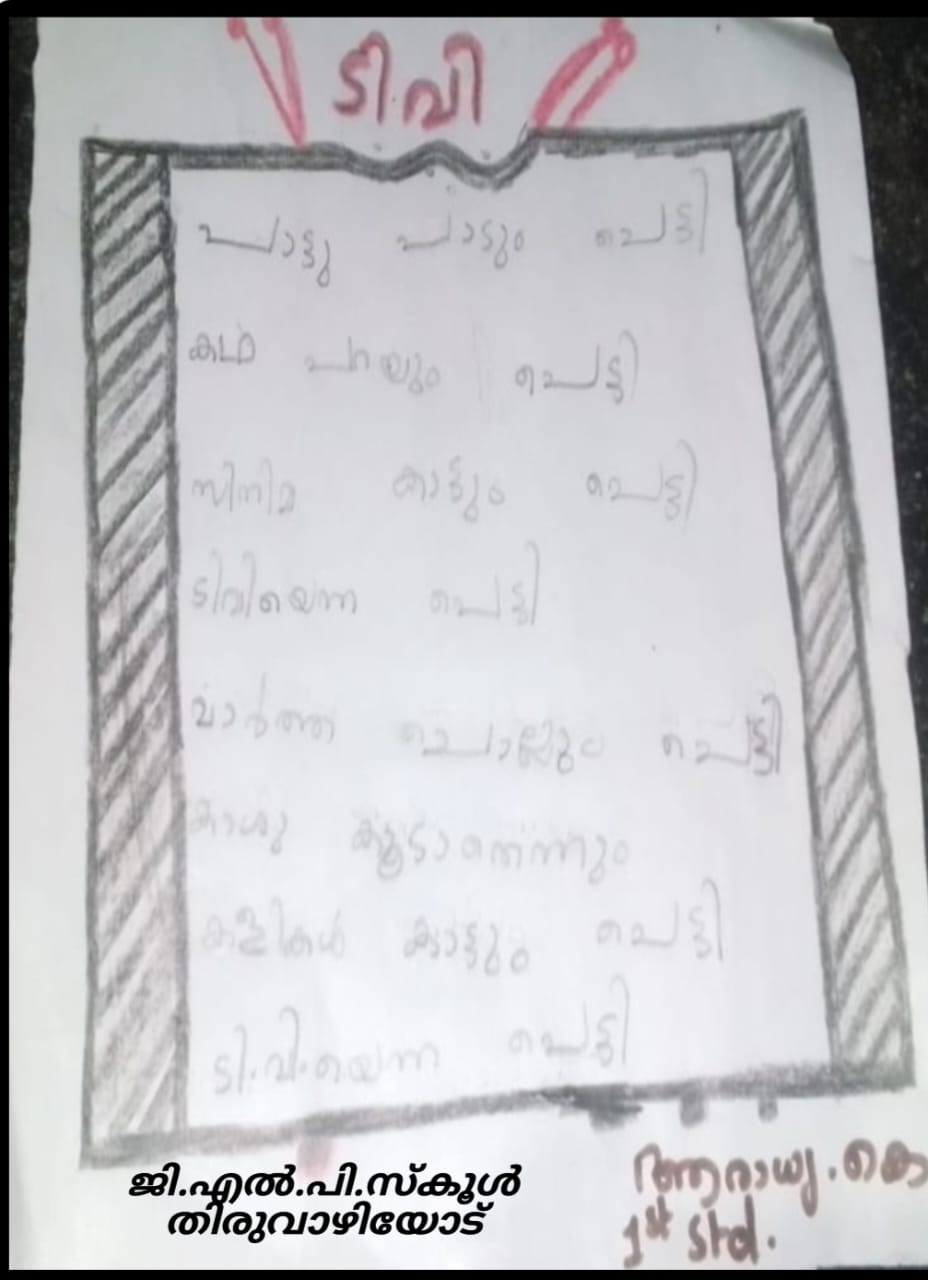 ടി.വി
പാട്ടു പാടും പെട്ടി
കഥ പറയും പെട്ടി
സിനിമ കാട്ടും പെട്ടി
ടിവിയെന്ന പെട്ടി
വാർത്ത ചൊല്ലും പെട്ടി
കാശു കൂടാതെന്നും
കളികൾ കാട്ടും പെട്ടി
ടി.വി.യെന്ന പെട്ടി
ജി.എൽ.പി.സ്കൂൾ
തിരുവാഴിയോട്
ആരാധ്യ.കെ
1st std.